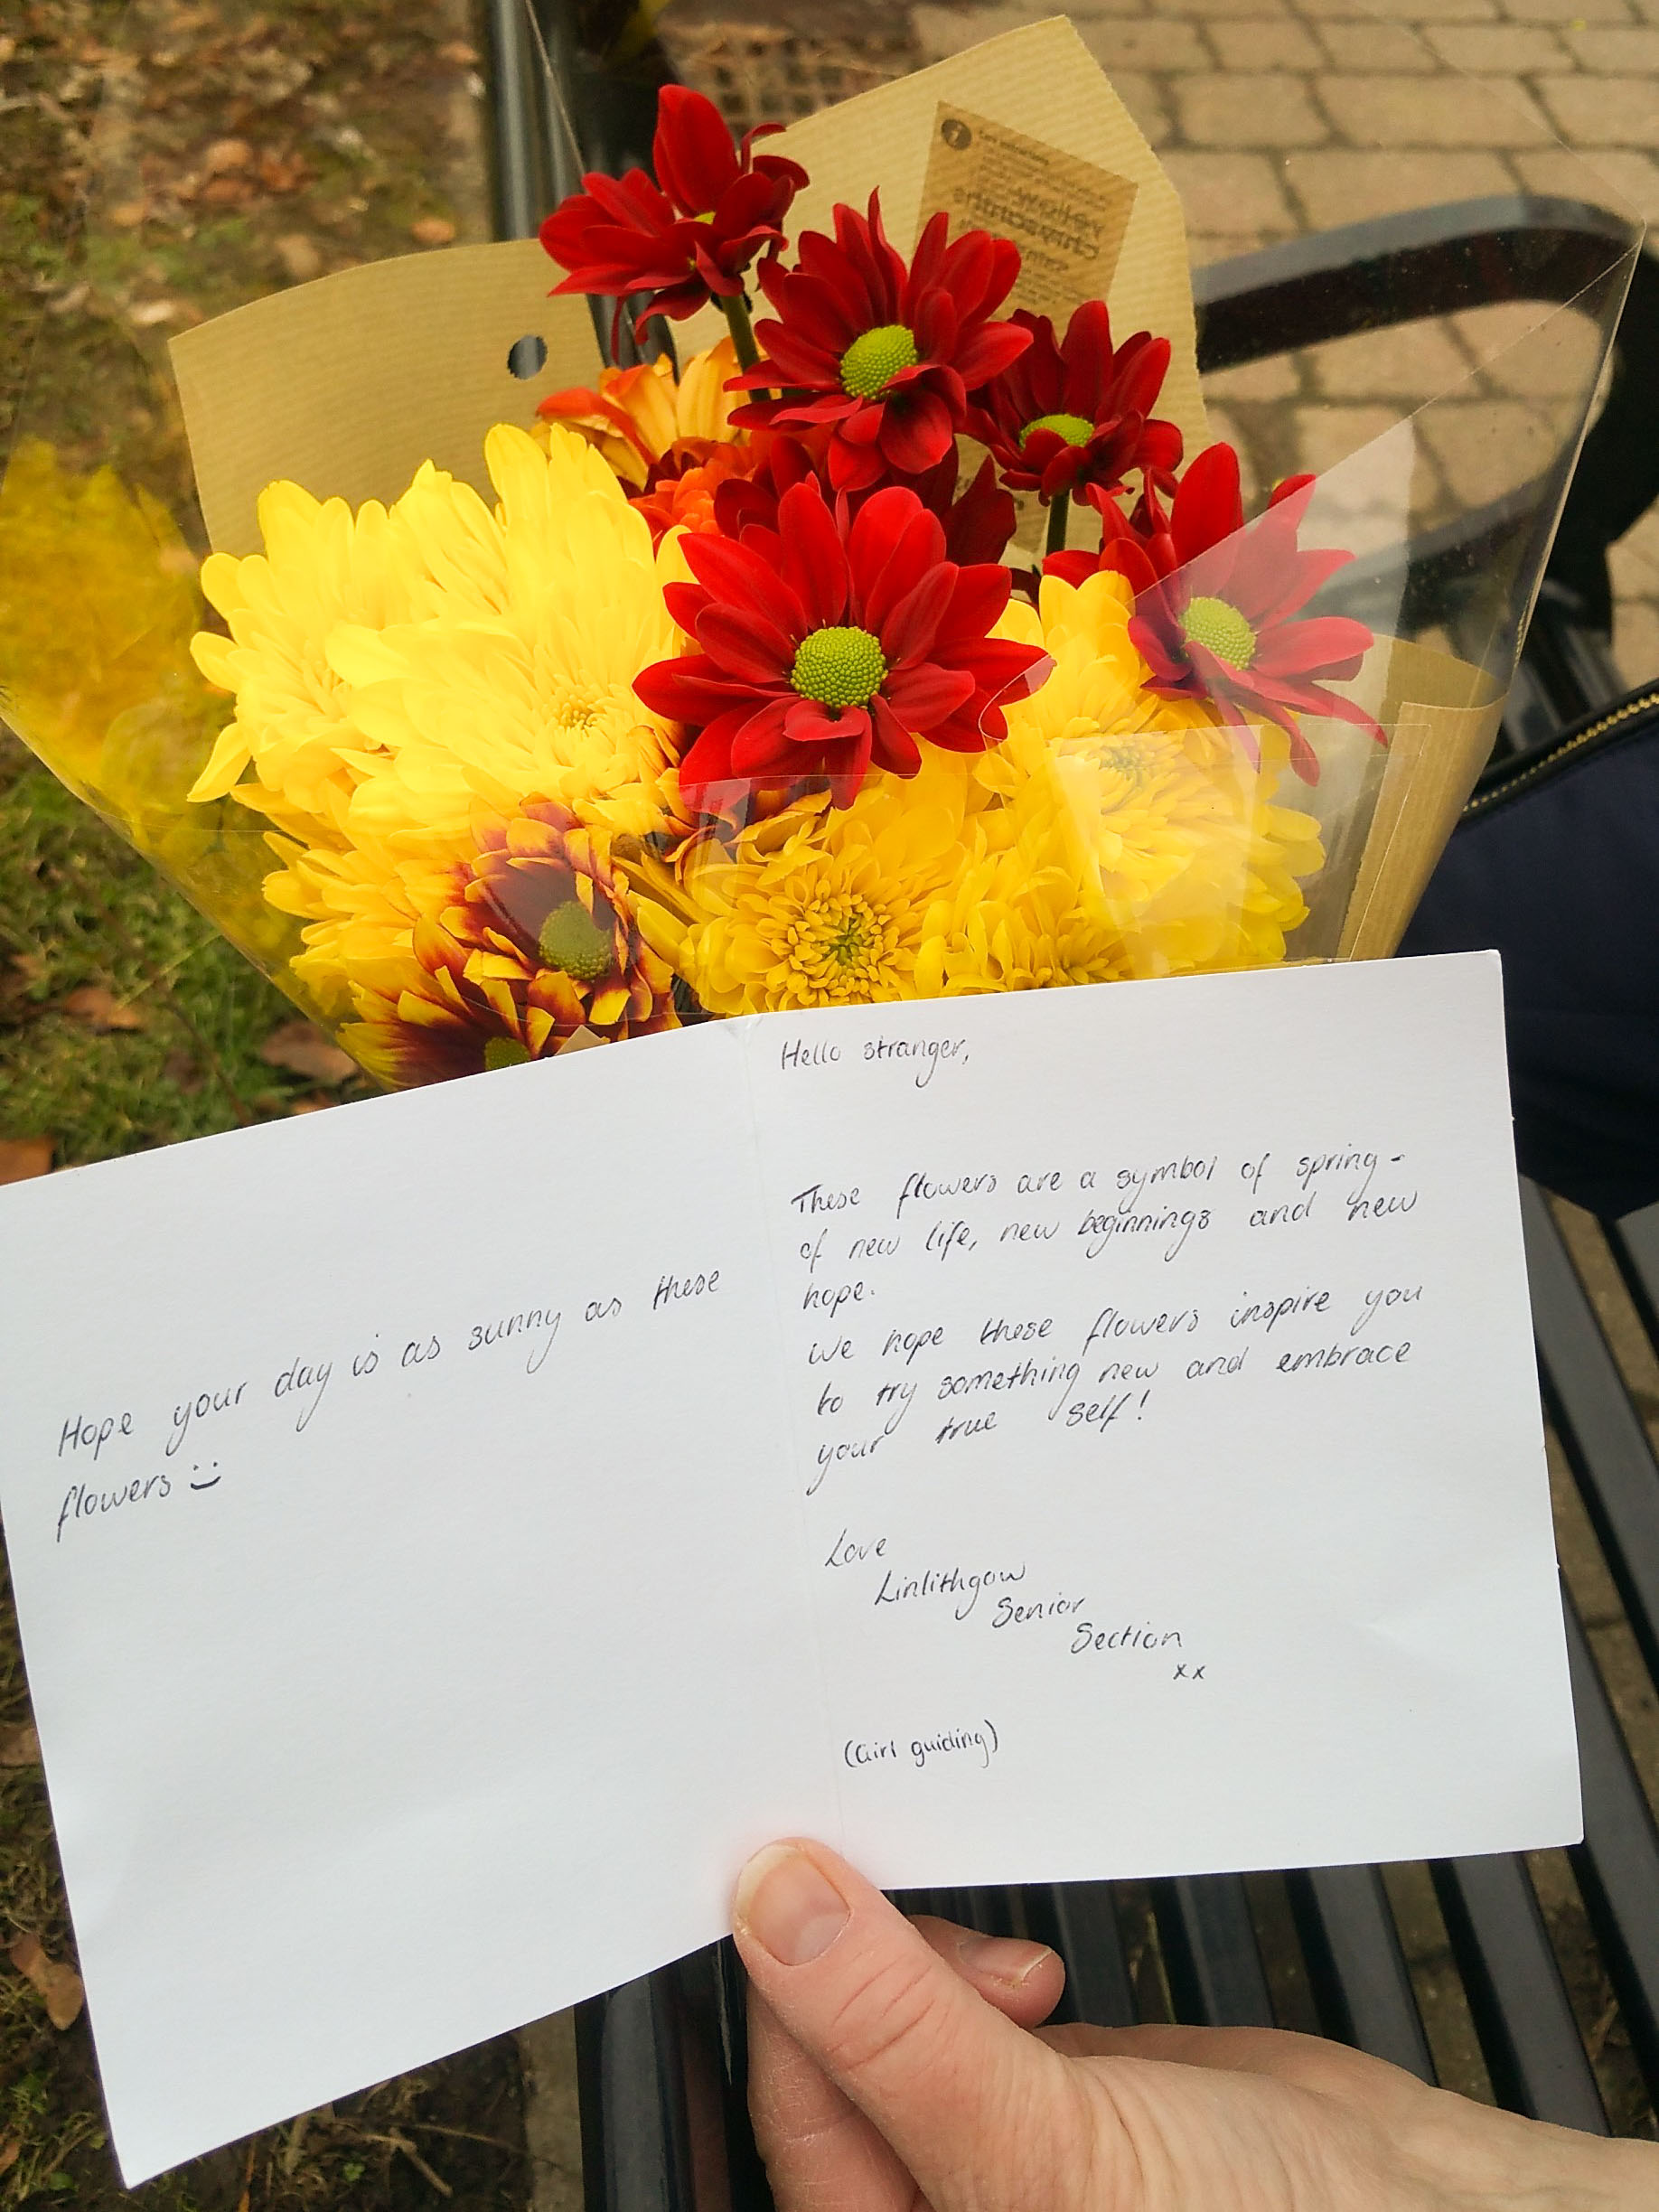 Hope your day is as sunny as these
flowers :)
Hello stranger,
These flowers are a symbol of spring -
of new life, new beginnings and new
hope.
We hope these flowers inspire you
to try something new and embrace
your true self!
Love
Linlithgow
Senior
Section
xx
(Girl guiding)